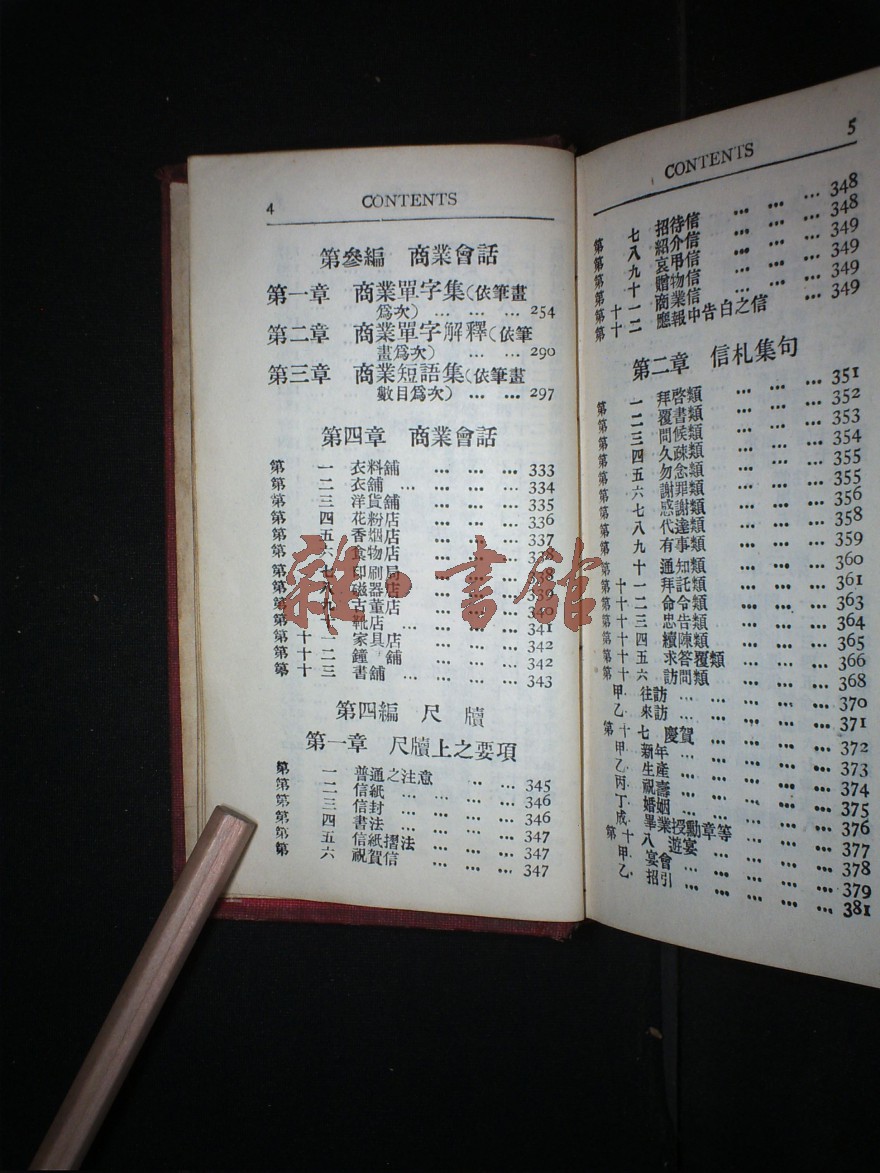 4 CONTENTS
第參編 商業會話
第一章 商業單字集(依筆畫
爲次) ... ... ... 254
第二章 商業單字解釋(依筆
畫爲次) ... ... 290
第三章 商業短語集(依筆畫
數目爲次) ... ... 297
第四章 商業會話
第一 衣料舖 ... ... ... 333
第二 衣舖 ... ... ... ... 334
第三 洋貨舖 ... ... ... 335
第四 花粉店 ... ... ... 336
第五 香烟店 ... ... ... 337
第六 食物店 ... ... ... 338
第七 印刷局 ... ... ... 338
第八 磁器店 ... ... ... 339
第九 古董店 ... ... ... 340
第十 靴店 ... ... ... ... 341
第十一 家具店 ... ... ... 342
第十二 鐘舖 ... ... ... 342
第十三 書舖 ... ... ... ... 343
第四編 尺牘
第一章 尺牘上之要項
第一 普通之注意 ... ... 345
第二 信紙 ... ... ... ... 346
第三 信封 ... ... ... ... 346
第四 書法 ... ... ... ... 347
第五 信紙摺法 ... ... ... 347
第六 祝賀信 ... ... ... 347
CONTENTS 5
第七 招待信 ... ... ... 348
第八 紹介信 ... ... ... 348
第九 哀弔信 ... ... ... 349
第十 贈物信 ... ... ... 349
第十一 商業信 ... ... ... 349
第十二 應報中告白之信 ... 349
第二章 信札集句
第一 拜啓類 ... ... ... 351
第二 覆書類 ... ... ... 352
第三 問候類 ... ... ... 353
第四 久疎類 ... ... ... 354
第五 勿念類 ... ... ... 355
第六 謝罪類 ... ... ... 355
第七 感謝類 ... ... ... 356
第八 代達類 ... ... ... 358
第九 有事類 ... ... ... 359
第十 通知類 ... ... ... 360
第十一 拜託類 ... ... ... 361
第十二 命令類 ... ... ... 363
第十三 忠告類 ... ... ... 364
第十四 續陳類 ... ... ... 365
第十五 求答覆類 ... ... ... 366
第十六 訪問類 ... ... ... 368
甲 往訪 ... ... ... ... 370
乙 來訪 ... ... ... ... 371
第十七 慶賀 ... ... ... 372
甲 新年 ... ... ... ... 373
乙 生產 ... ... ... ... 374
丙 祝壽 ... ... ... ... 375
丁 婚姻 ... ... ... ... 376
戊 畢業授勳章等 ... ... 377
第十八 遊宴 ... ... ... 378
甲 宴會 ... ... ... ... 379
乙 招引 ... ... ... ... 381
雜·書館